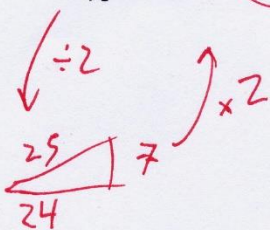 ÷2
×2
25
7
24